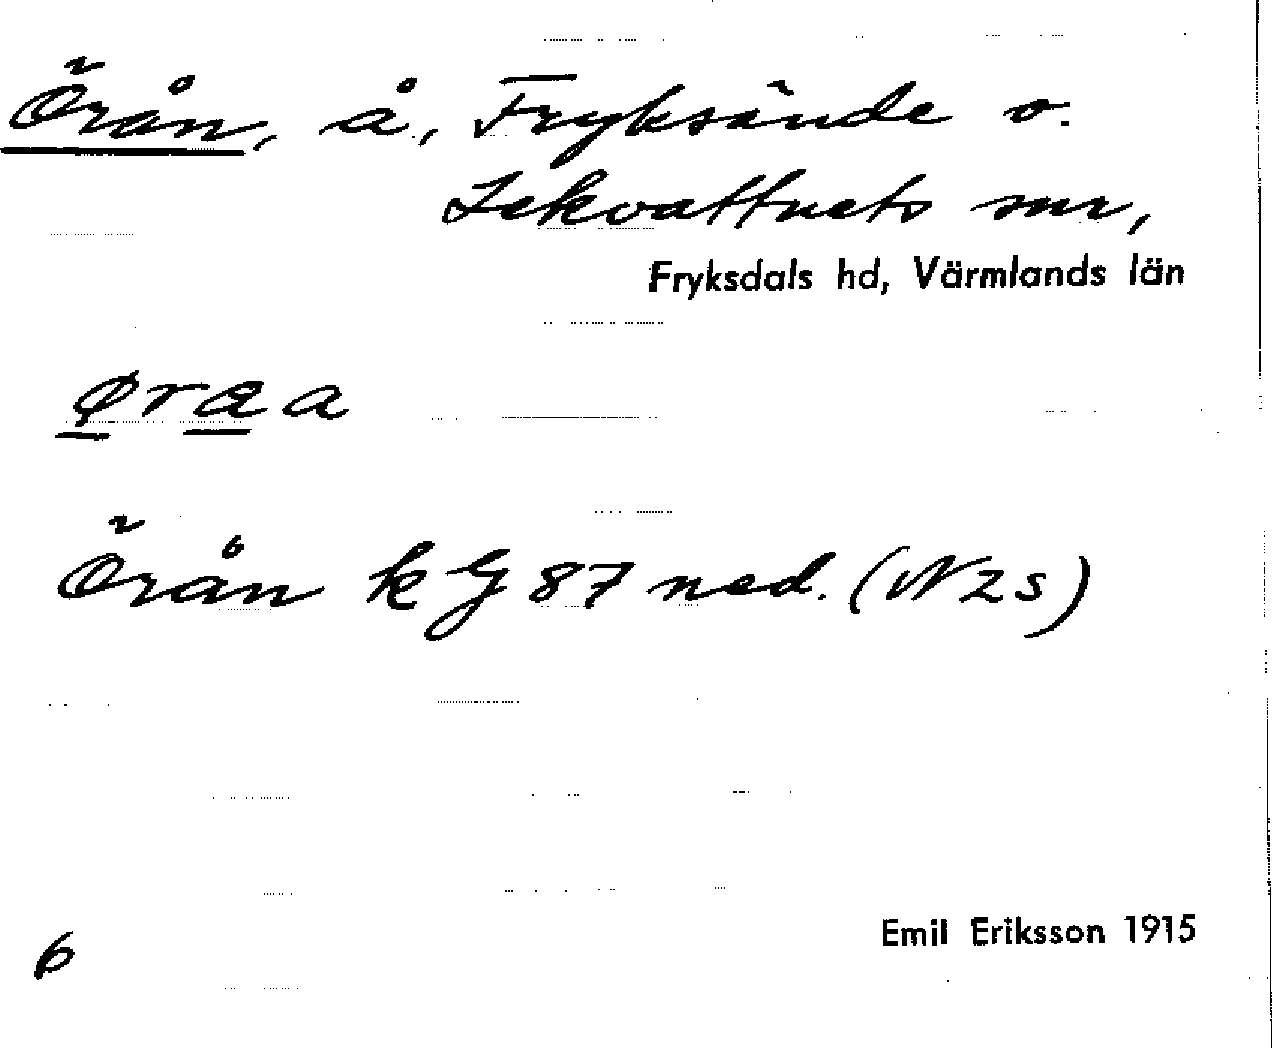 Örån, å, Fryksände o.
Lekvattnets snr,
Fryksdals hd, Värmlands län
øræa
Örån k G 87 ned. (N2S)
6
Emil Eriksson 1915